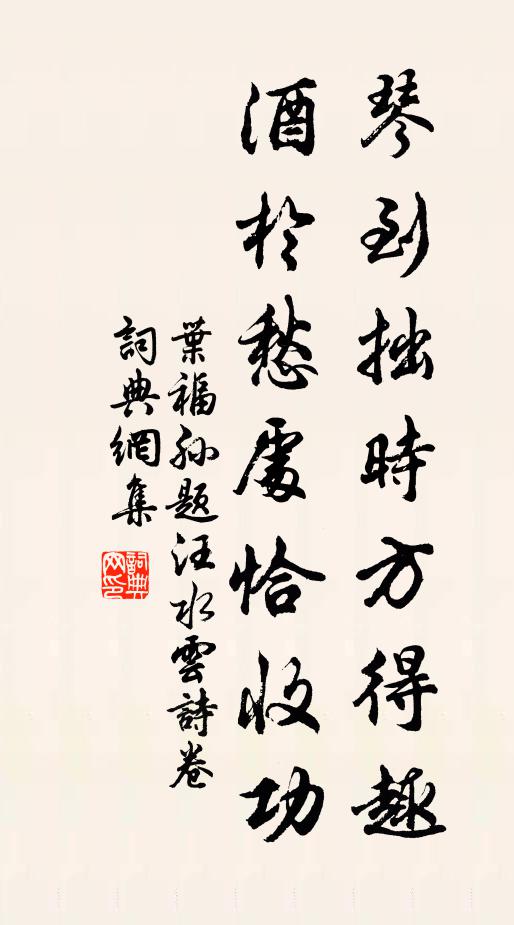 琴到拙時方得趣
酒於愁處恰收功
葉福孫題汪水雲詩卷
詞典網集
詞典
网印